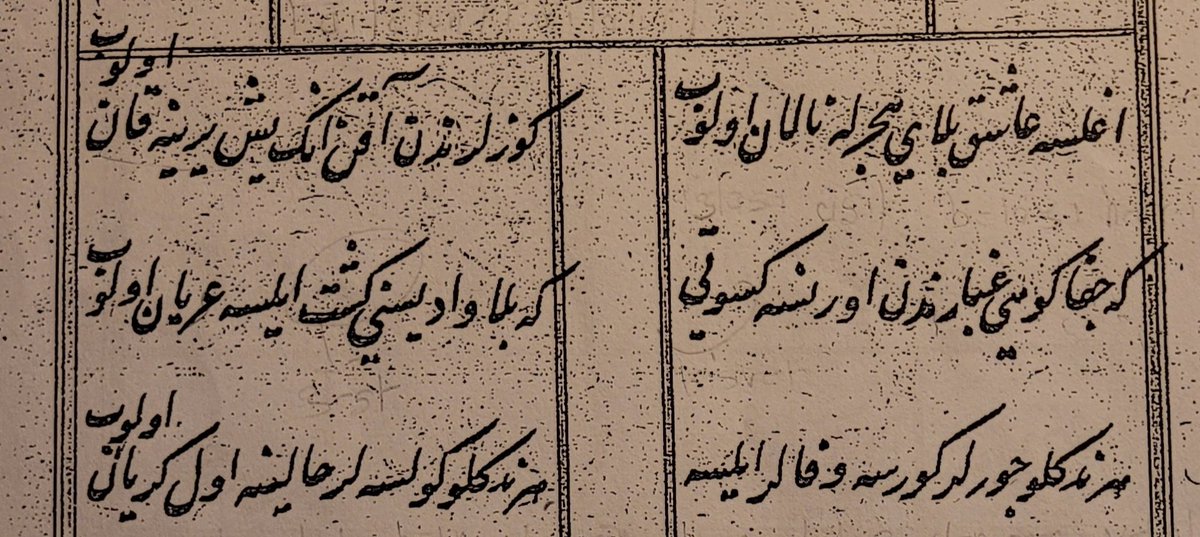 اغلسه عاشق بلاي هجرله نالان اولوب
كوزلرندن آقن انك يش يرينه قان اولوب
كه جفا كويي غبارندن اورنسه كسوتي
كه بلا واديسني كشت ايلسه عريان اولوب
هر نه دكلو جورلر كورسه وفالر ايلسه
هر نه دكلو كولسه لر حالينه اول كريان اولوب